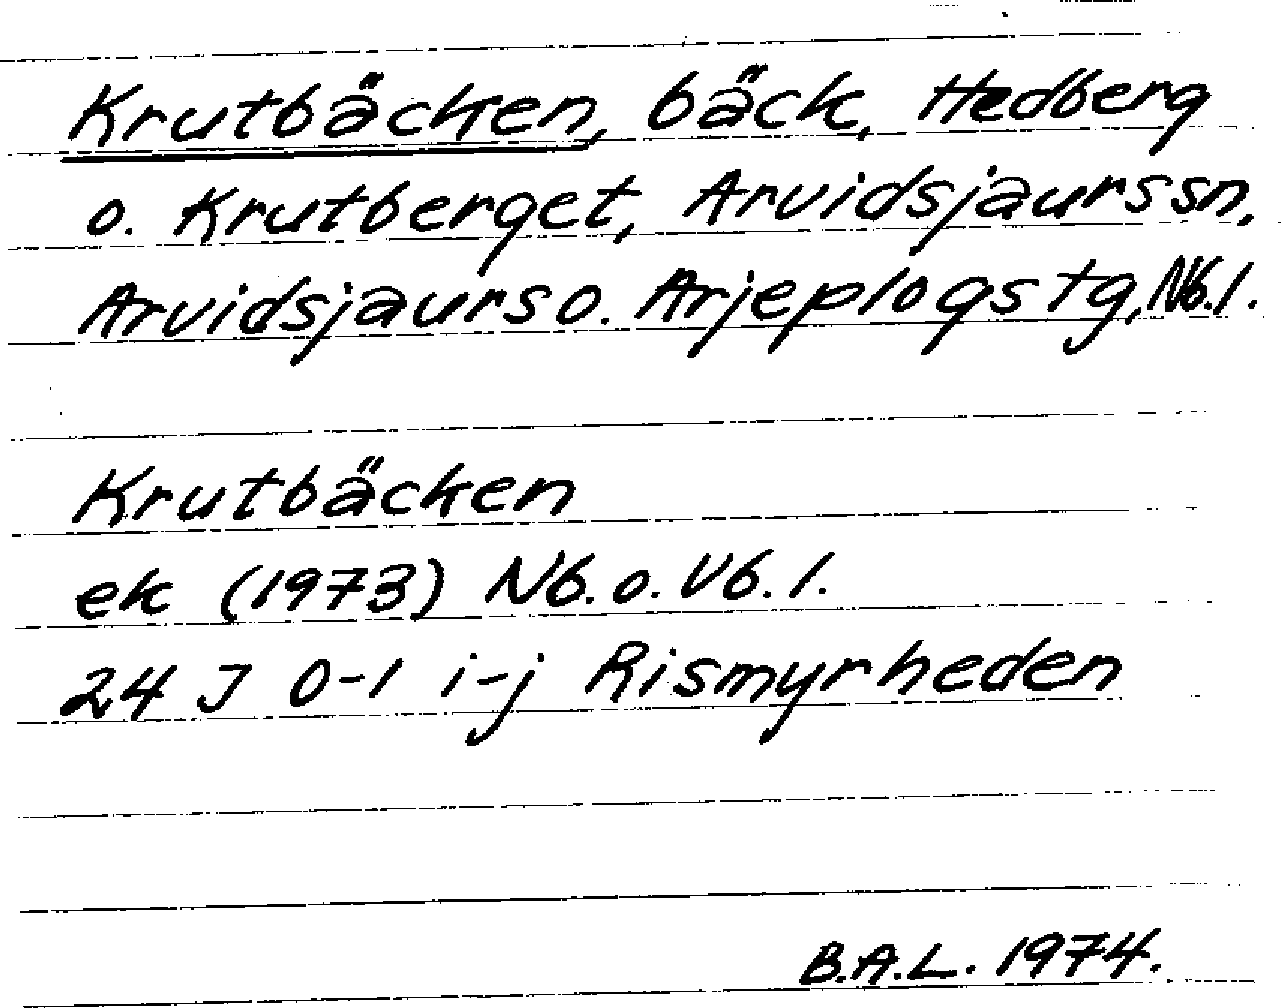 Krutbäcken, bäck, Hedberg
o. Krutberget, Arvidsjaurs sn,
Arvidsjaurs o. Arjeplogs tg, Nb. l.
Krutbäcken
ek (1973) Nb. o. Vb. l.
24 J 0-1 i-j Rismyrheden
B.A.L. 1974.